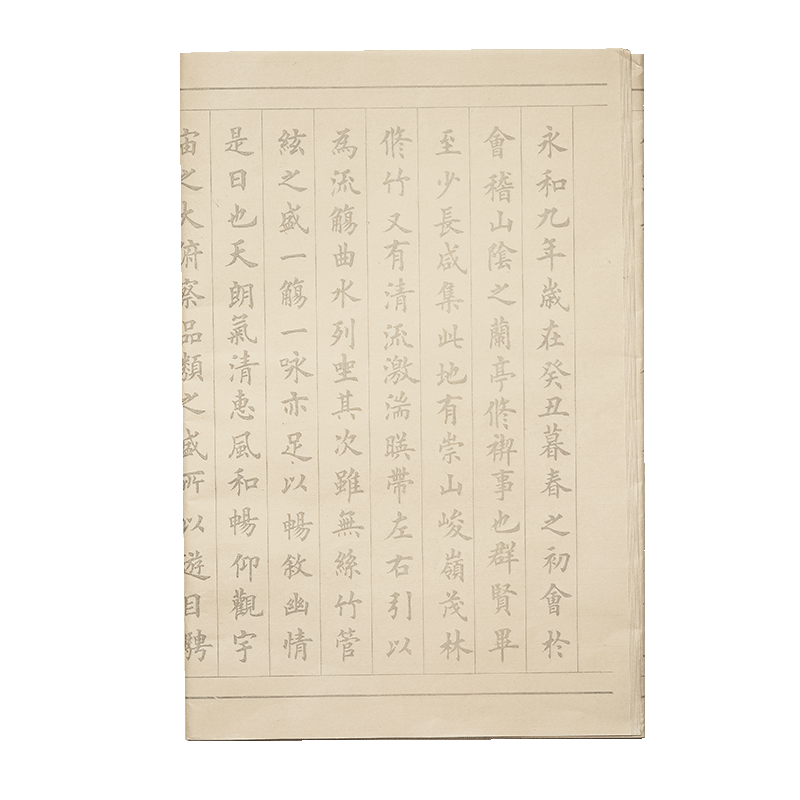 永和九年歲在癸丑暮春之初會於
會稽山陰之蘭亭修禊事也群賢畢
至少長咸集此地有崇山峻嶺茂林
修竹又有清流激湍暎帶左右引以
為流觴曲水列坐其次雖無絲竹管
絃之盛一觴一咏亦足以暢敘幽情
是日也天朗氣清惠風和暢仰觀宇
宙之大俯察品類之盛所以遊目騁